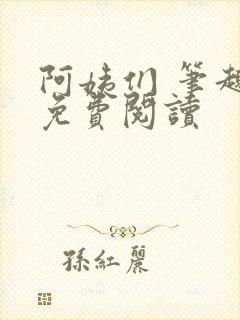 阿姨们 筆趣
免費閱讀
孫紅麗